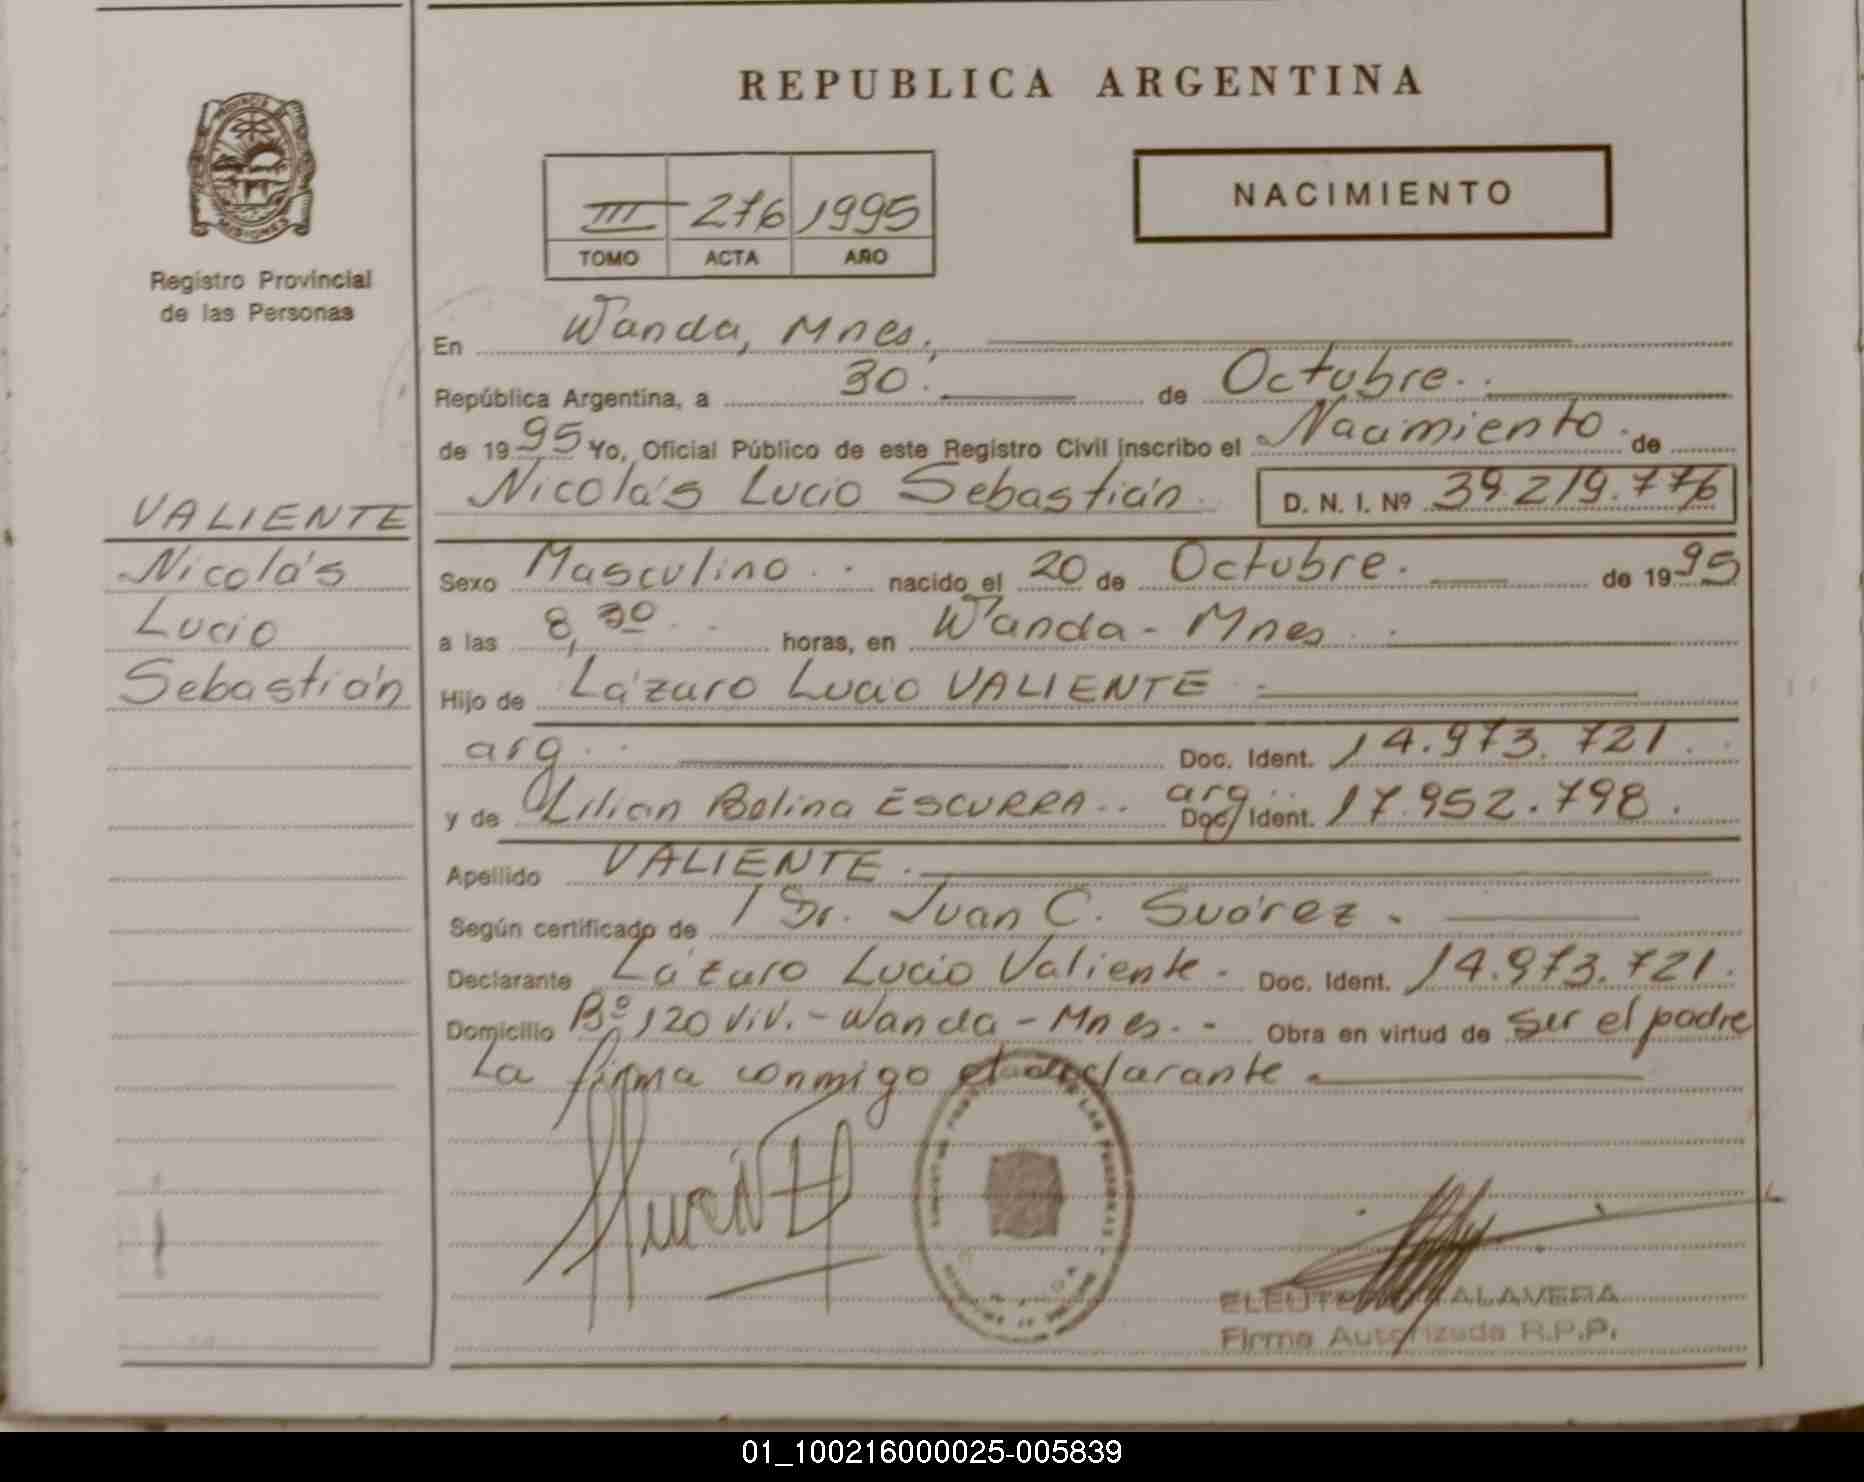 REPUBLICA ARGENTINA
NACIMIENTO
III 276 1995
TOMO ACTA AÑO
PROVINCIA DE
MISIONES
Registro Provincial
de las Personas
VALIENTE
Nicolás
Lucio
Sebastián
En Wanda, Mnes.
República Argentina, a 30 de Octubre
de 1995 Yo, Oficial Público de este Registro Civil inscribo el Nacimiento de
Nicolás Lucio Sebastián D. N. I. Nº 39.219.776
Sexo Masculino nacido el 20 de Octubre de 1995
a las 8,30 horas, en Wanda - Mnes
Hijo de Lázaro Lucio VALIENTE
arg. Doc. Ident. 14.973.721
y de Lilian Belina ESCURRA arg. Doc. Ident. 17.952.798
Apellido VALIENTE
Según certificado de Dr. Juan C. Suárez
Declarante Lázaro Lucio Valiente Doc. Ident. 14.973.721
Domicilio Bº 120 Viv. - Wanda - Mnes. Obra en virtud de ser el padre
La firma conmigo el declarante
ALAVERA
Firma Autorizada R.P.P.
01_100216000025-005839